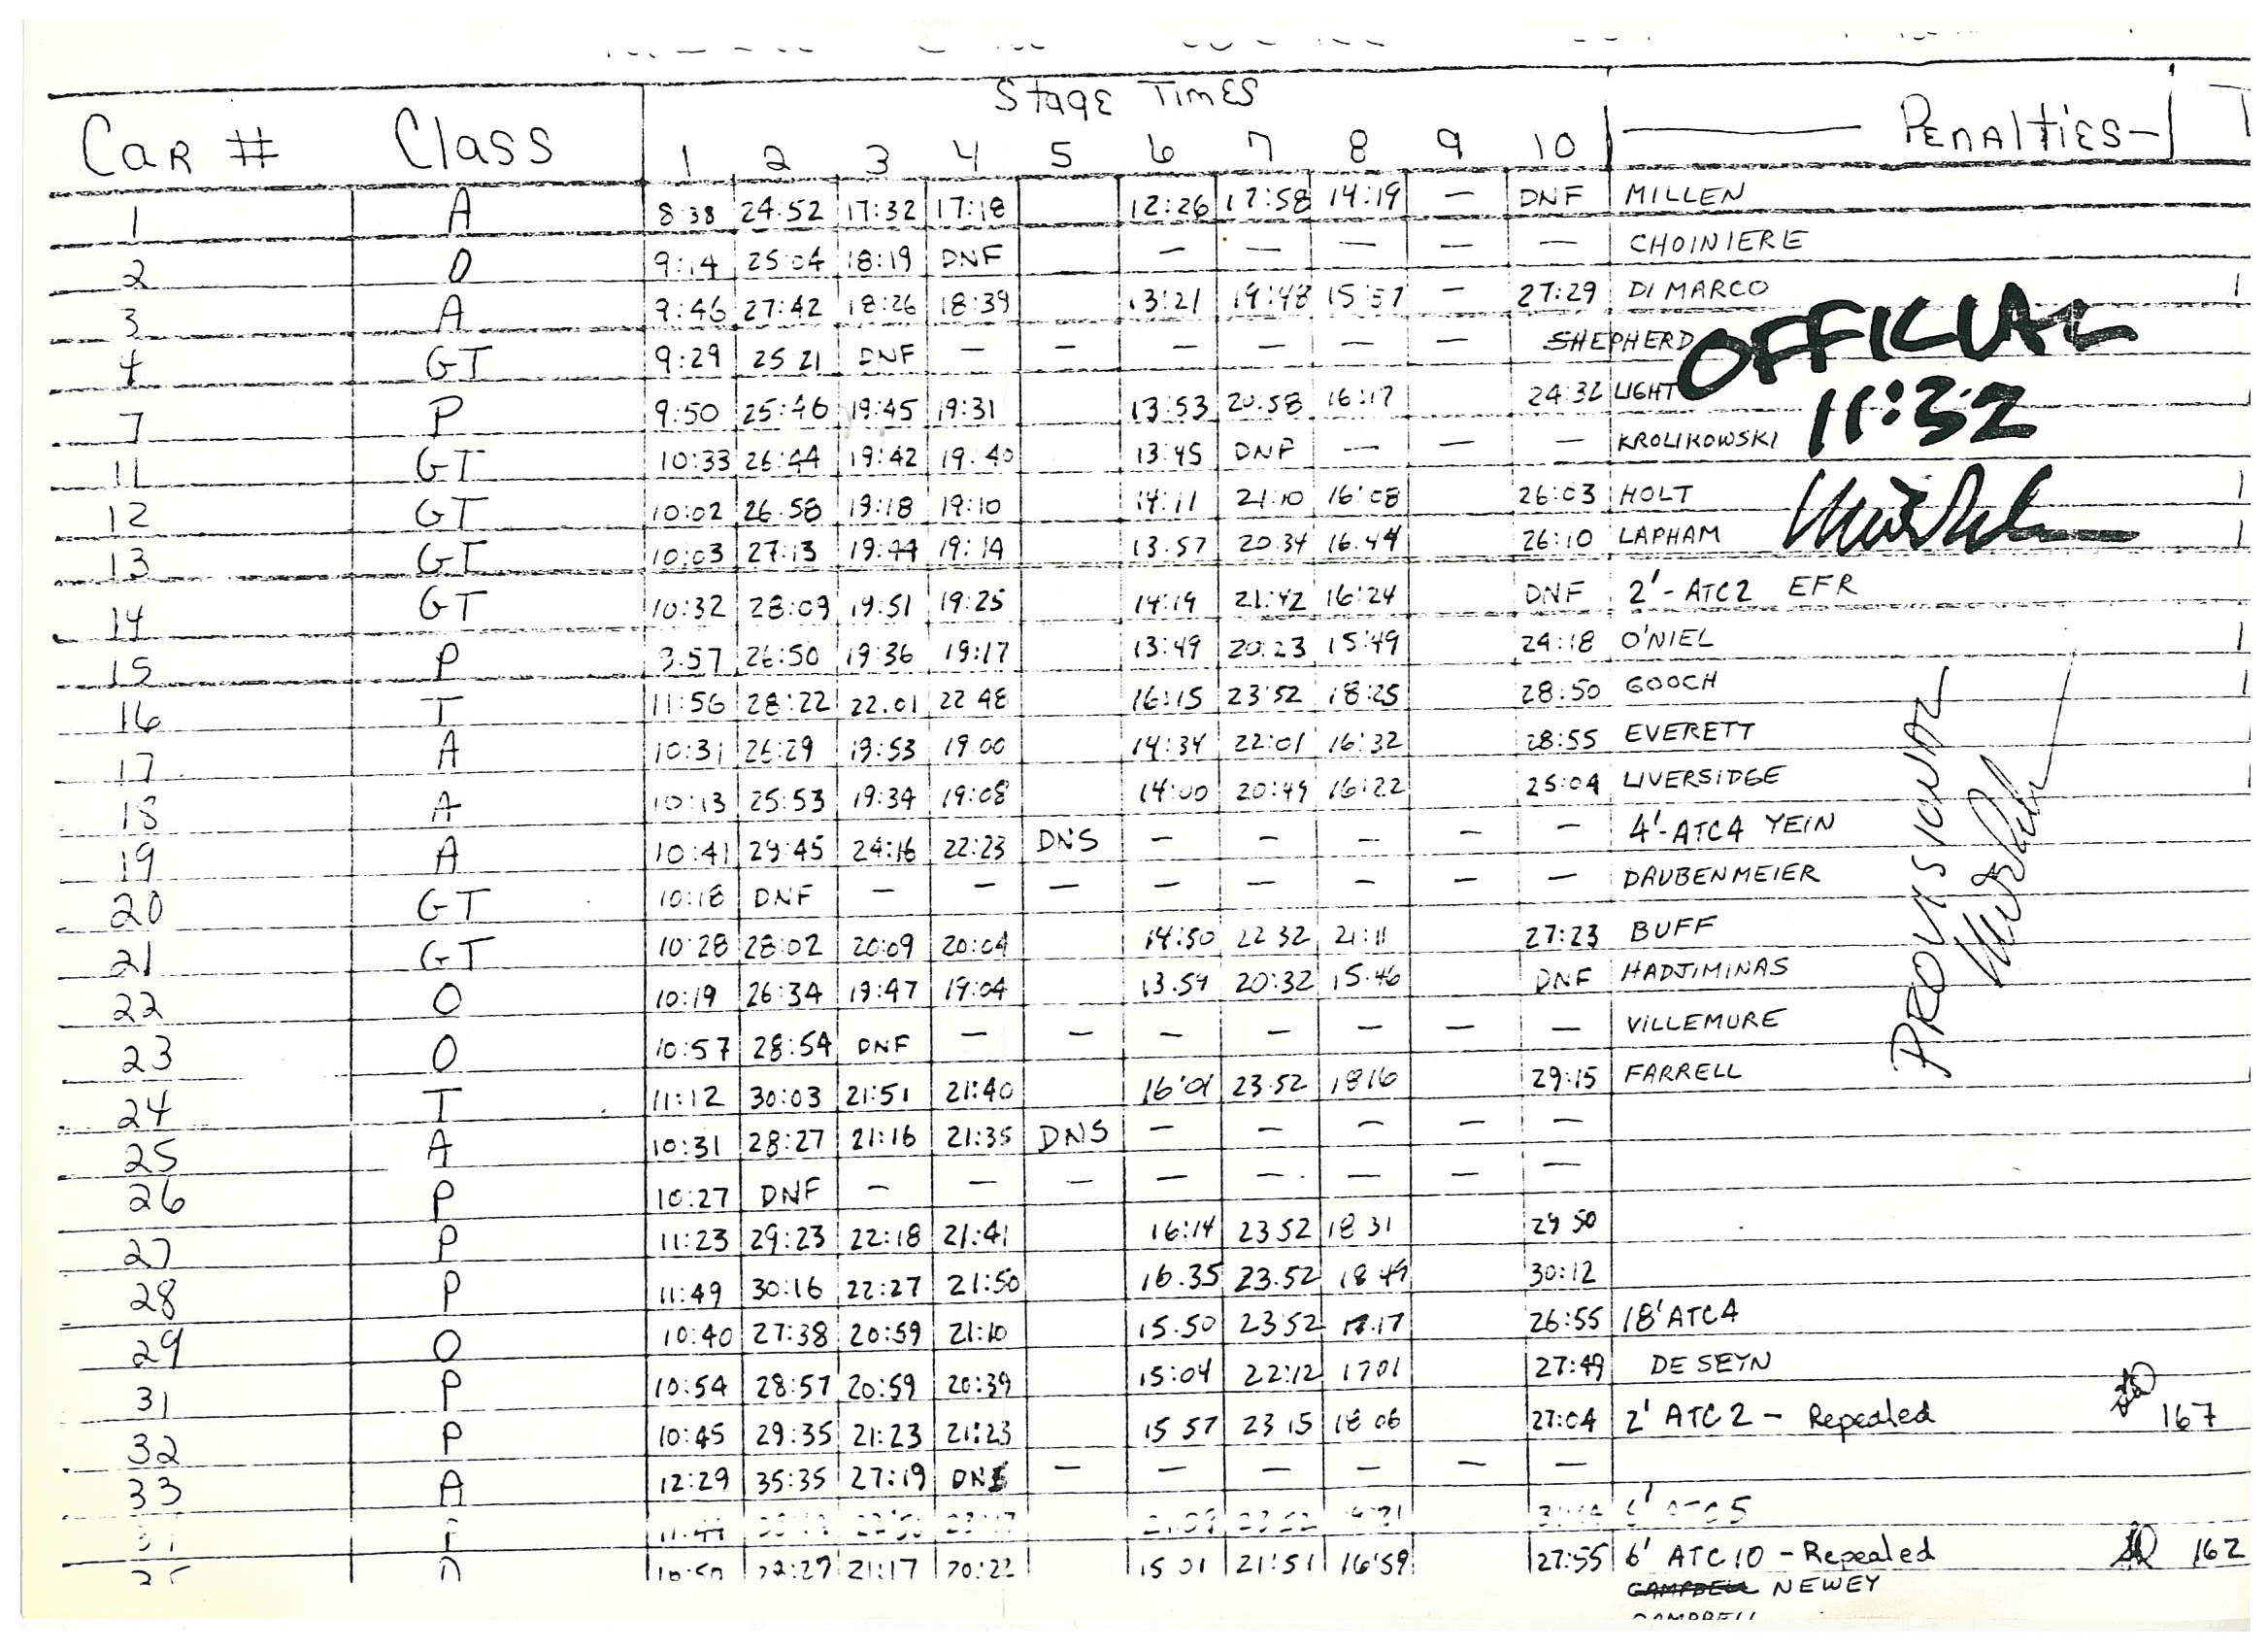 Stage Times
Car # Class 1 2 3 4 5 6 7 8 9 10 Penalties
1 A 8:38 24:52 17:32 17:18 12:26 17:58 14:19 — DNF MILLEN
2 O 9:14 25:04 18:19 DNF — — — — — CHOINIERE
3 A 9:46 27:42 18:26 18:39 13:21 19:48 15:57 — 27:29 DI MARCO
4 GT 9:29 25 21 DNF — — — — — — SHEPHERD
OFFICIAL
7 P 9:50 25:46 19:45 19:31 13:53 20:58 16:17 24:32 LIGHT
11:32
11 GT 10:33 26:44 19:42 19:40 13:45 DNF — — — KROLIKOWSKI
12 GT 10:02 26:58 19:18 19:10 14:11 21:10 16:08 26:03 HOLT
13 GT 10:03 27:13 19:44 19:14 13:57 20:34 16:44 26:10 LAPHAM
14 GT 10:32 28:09 19:51 19:25 14:19 21:42 16:24 DNF 2'- ATC2 EFR
15 P 9:57 26:50 19:36 19:17 13:49 20:23 15:49 24:18 O'NIEL
16 T 11:56 28:22 22:01 22 48 16:15 23:52 18:25 28:50 GOOCH
17 A 10:31 26:29 19:53 19:00 14:34 22:01 16:32 28:55 EVERETT
18 A 10:13 25:53 19:34 19:08 14:00 20:49 16:22 25:04 LIVERSIDGE
PROVISIONAL
19 A 10:41 29:45 24:16 22:23 DNS — — — — — 4'-ATC4 YEIN
20 GT 10:18 DNF — — — — — — — — DAUBENMEIER
21 GT 10:28 28:02 20:09 20:04 14:50 22 32 21:11 27:23 BUFF
22 O 10:19 26:34 19:47 19:04 13:59 20:32 15:46 DNF HADJIMINAS
23 O 10:57 28:54 DNF — — — — — — — VILLEMURE
24 T 11:12 30:03 21:51 21:40 16:01 23:52 18 16 29:15 FARRELL
25 A 10:31 28:27 21:16 21:35 DNS — — — — —
26 P 10:27 DNF — — — — — — — —
27 P 11:23 29:23 22:18 21:41 16:14 23 52 18 31 29 50
28 P 11:49 30:16 22:27 21:50 16:35 23:52 18 49 30:12
29 O 10:40 27:38 20:59 21:10 15:50 23 52 17:17 26:55 18' ATC4
31 P 10:54 28:57 20:59 20:39 15:04 22:12 17 01 27:49 DE SEYN
32 P 10:45 29:35 21:23 21:23 15 57 23 15 18 06 27:04 2' ATC 2 - Repealed 167
33 A 12:29 35:35 27:19 — — — — — —
27:55 6' ATC 10 - Repealed 162
21:17 20:22 15 01 21:51 16:59
NEWEY
CAMPBELL